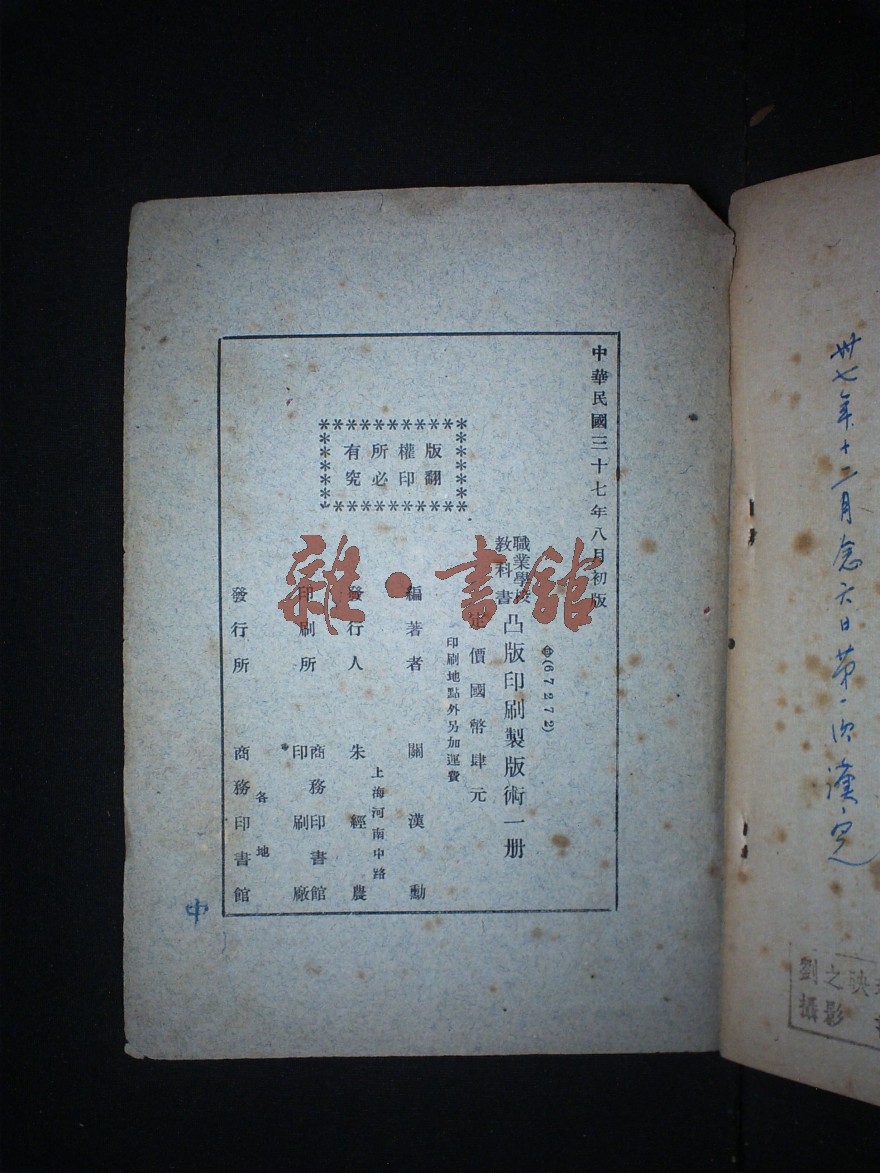 卅七年十二月念六日第一次讀完
劉之
攝影
中華民國三十七年八月初版
(67272)
職業學校
教科書
凸版印刷製版術一册
定價國幣肆元
印刷地點外另加運費
版權所有
翻印必究
編著者 關漢勳
上海河南中路
發行人 朱經農
印刷所 商務印書館
印刷廠
各地
發行所 商務印書館
中
雜·書館